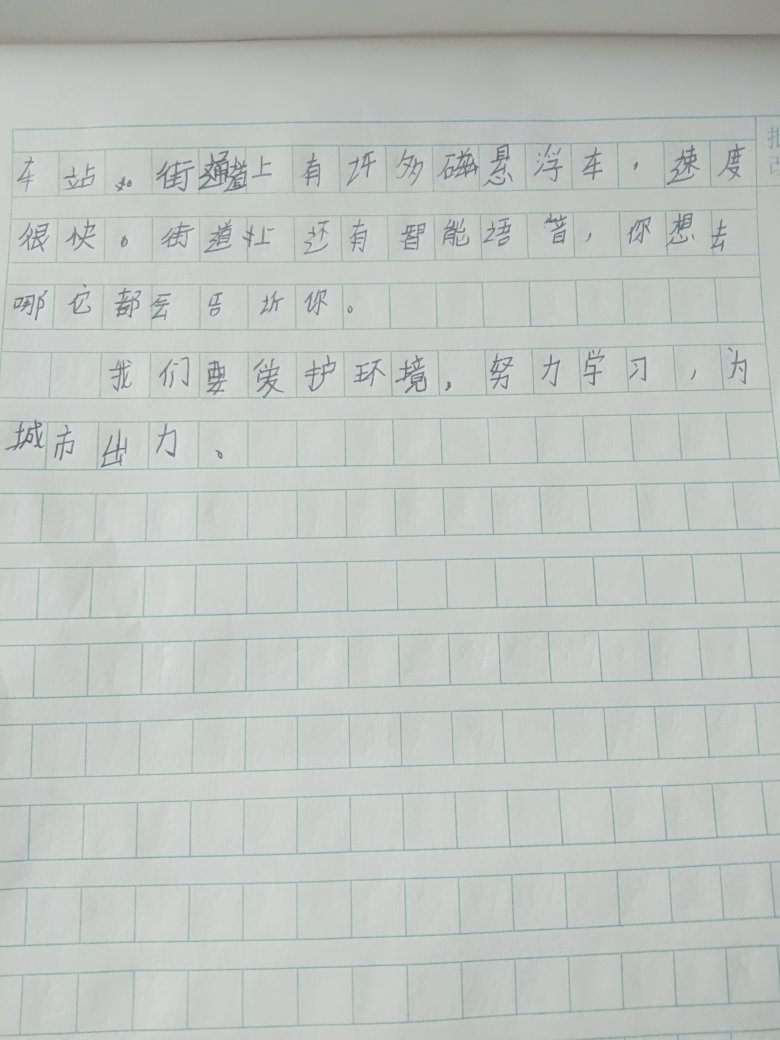 车站。街道上有许多磁悬浮车，速度
很快。街道上还有智能语音，你想去
哪它都会告诉你。
我们要爱护环境，努力学习，为
城市出力。
批
改